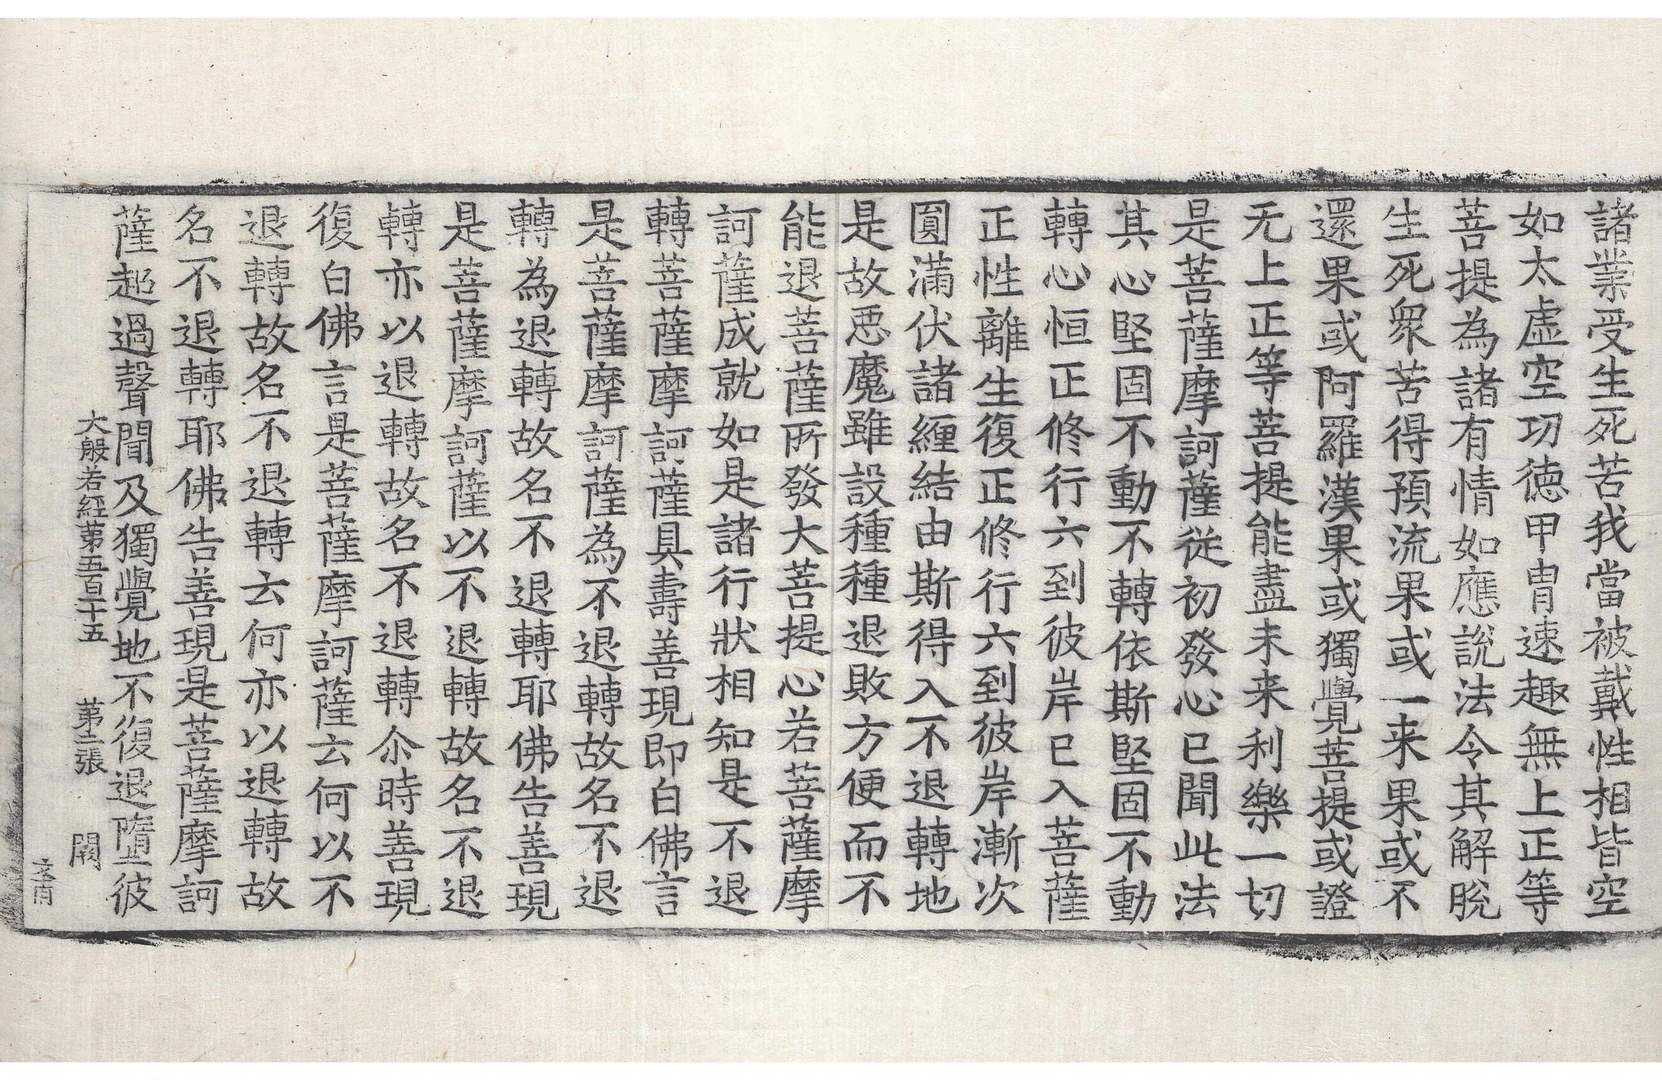 諸業受生死苦我當被戴性相皆空
如太虛空功德甲冑速趣無上正等
菩提為諸有情如應說法令其解脫
生死衆苦得預流果或一来果或不
還果或阿羅漢果或獨覺菩提或證
无上正等菩提能盡未来利樂一切
是菩薩摩訶薩從初發心已聞此法
其心堅固不動不轉依斯堅固不動
轉心恒正修行六到彼岸已入菩薩
正性離生復正修行六到彼岸漸次
圓滿伏諸纏結由斯得入不退轉地
是故惡魔雖設種種退敗方便而不
能退菩薩所發大菩提心若菩薩摩
訶薩成就如是諸行狀相知是不退
轉菩薩摩訶薩具壽善現即白佛言
是菩薩摩訶薩為不退轉故名不退
轉為退轉故名不退轉耶佛告善現
是菩薩摩訶薩以不退轉故名不退
轉亦以退轉故名不退轉尒時善現
復白佛言是菩薩摩訶薩云何以不
退轉故名不退轉云何亦以退轉故
名不退轉耶佛告善現是菩薩摩訶
薩超過聲聞及獨覺地不復退墮彼
大般若經苐五百十五 苐二張 闕